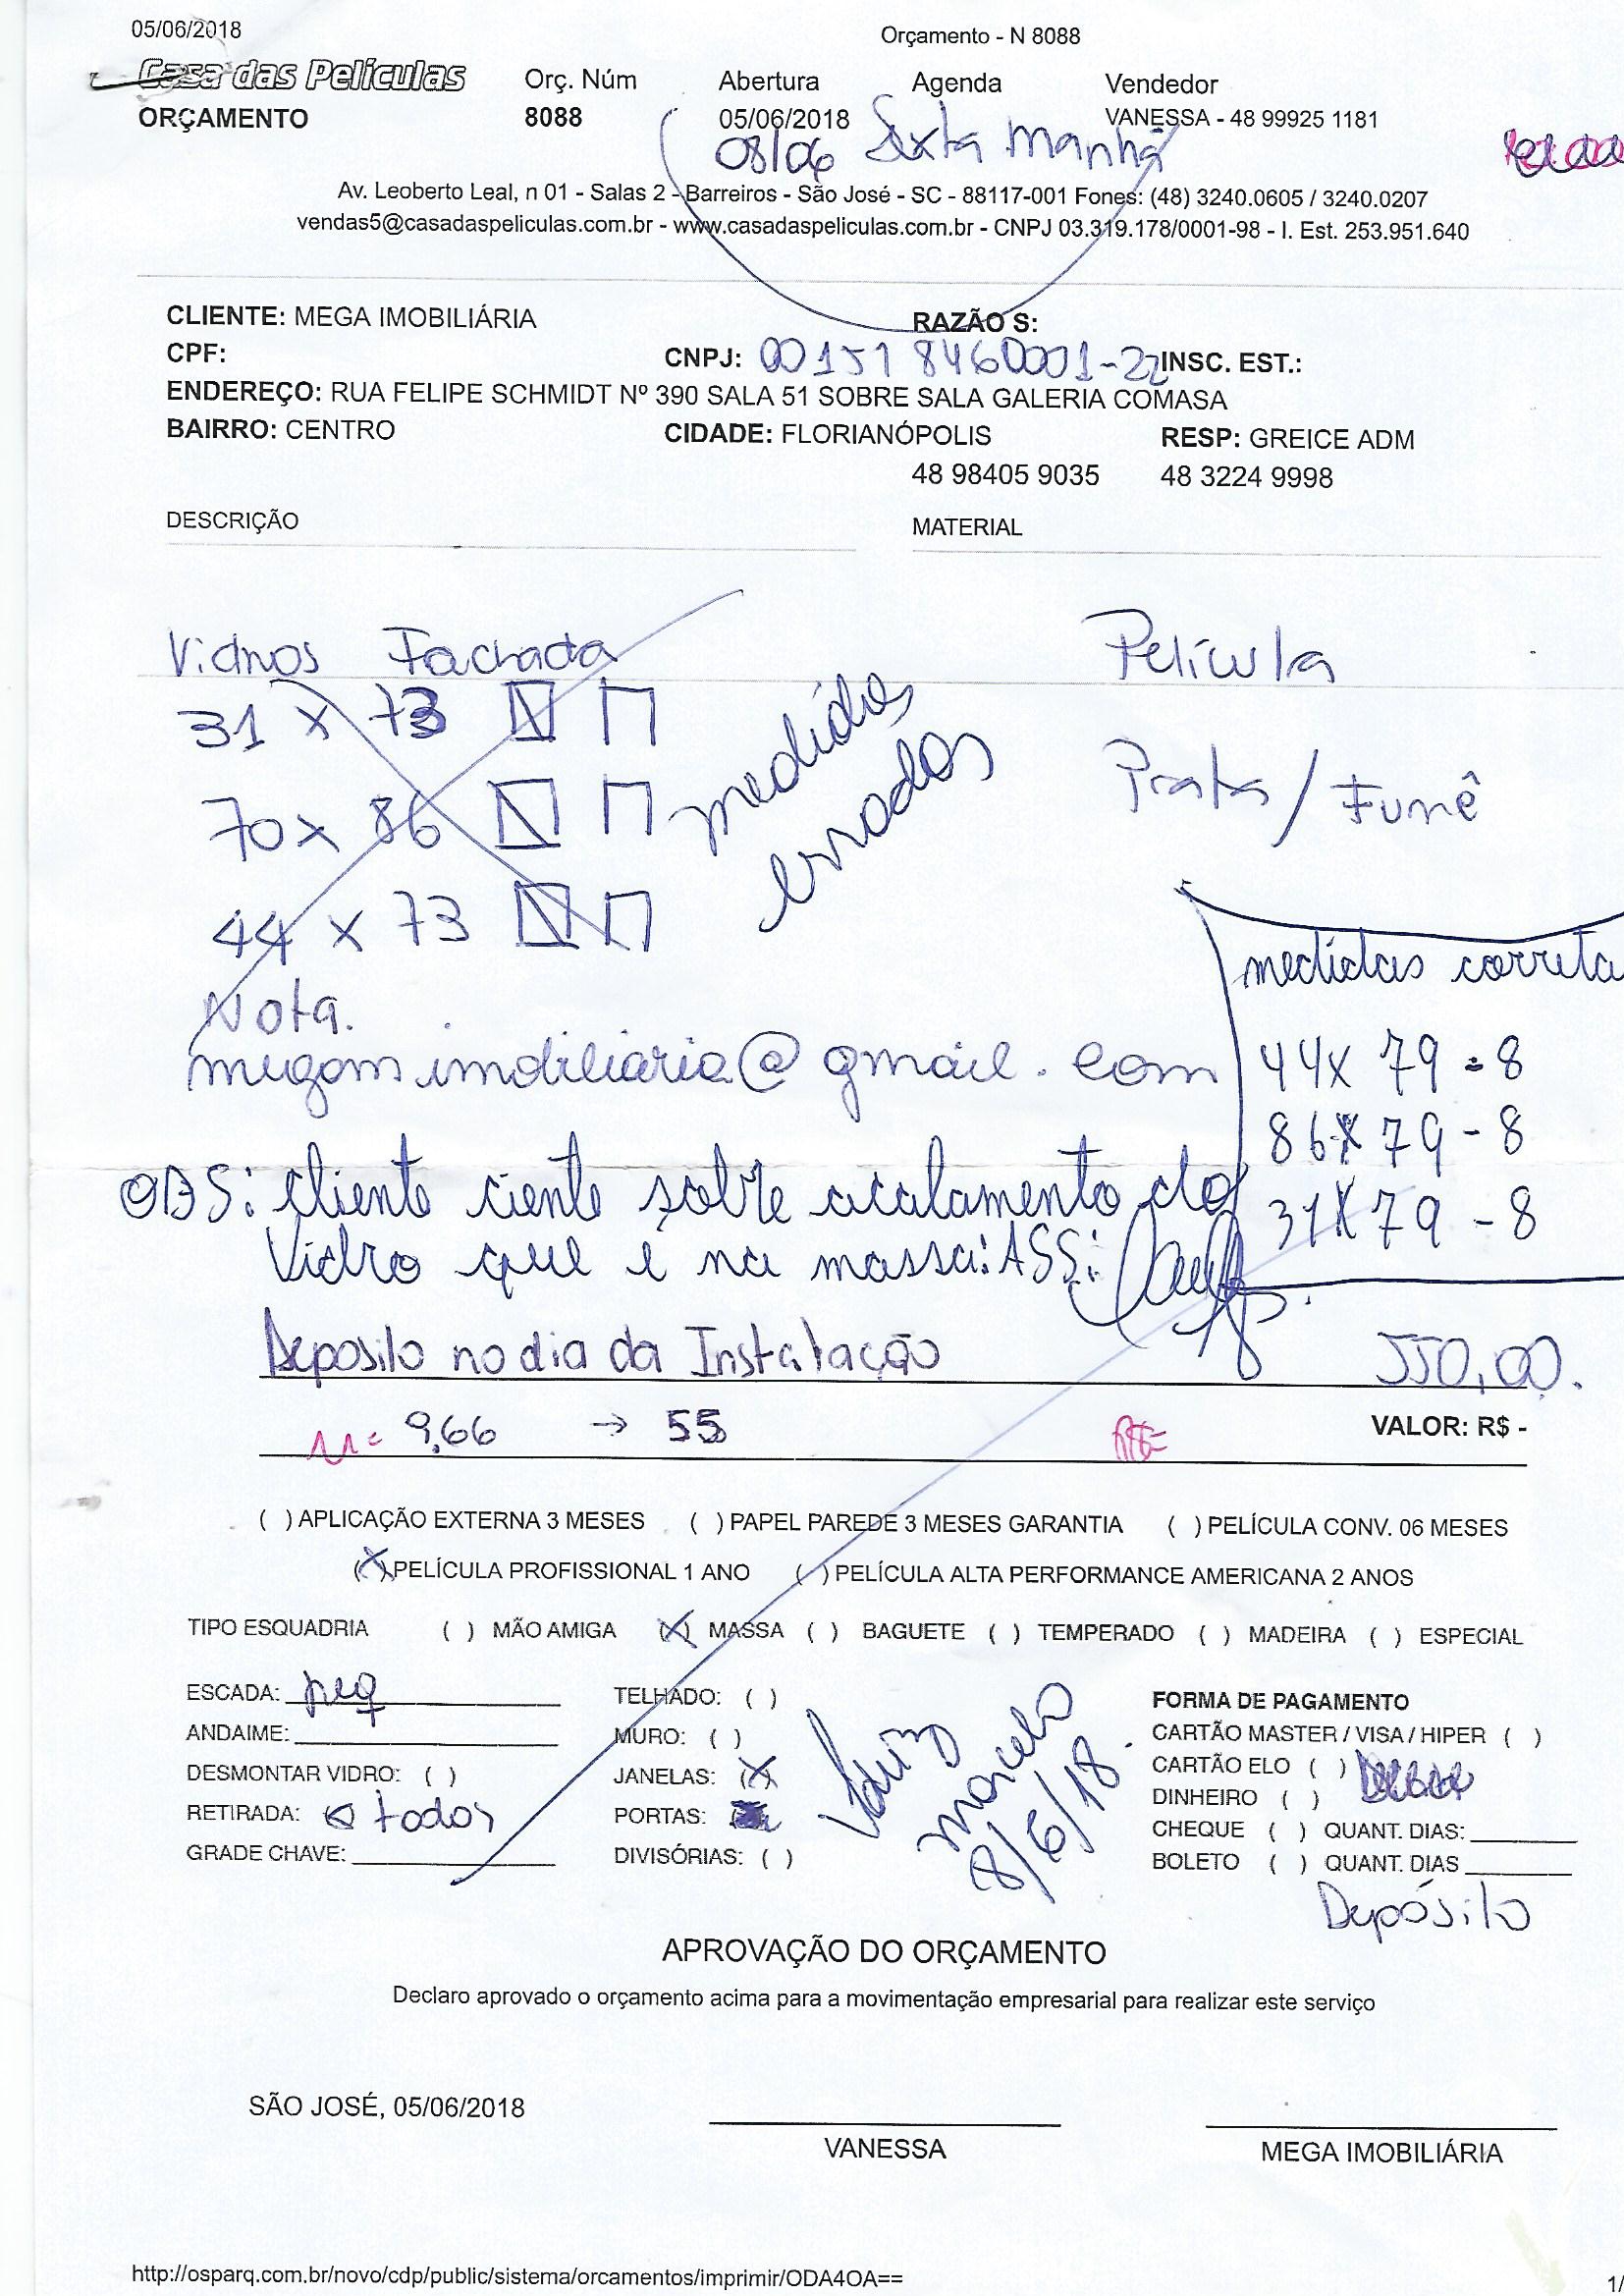 05/06/2018 Orçamento - N 8088
Casa das Películas Orç. Núm Abertura Agenda Vendedor
ORÇAMENTO 8088 05/06/2018 VANESSA - 48 99925 1181
08/06 Sexta Manhã
Av. Leoberto Leal, n 01 - Salas 2 - Barreiros - São José - SC - 88117-001 Fones: (48) 3240.0605 / 3240.0207
vendas5@casadaspeliculas.com.br - www.casadaspeliculas.com.br - CNPJ 03.319.178/0001-98 - I. Est. 253.951.640
CLIENTE: MEGA IMOBILIÁRIA RAZÃO S:
CPF: CNPJ: 001518460001-22 INSC. EST.:
ENDEREÇO: RUA FELIPE SCHMIDT Nº 390 SALA 51 SOBRE SALA GALERIA COMASA
BAIRRO: CENTRO CIDADE: FLORIANÓPOLIS RESP: GREICE ADM
48 98405 9035 48 3224 9998
DESCRIÇÃO MATERIAL
Vidros Fachada Película
31 x 73
70 x 86 Prata / Fumê
44 x 73
medidas
erradas
Nota.
medidas correta
44x 79 - 8
86x 79 - 8
31x 79 - 8
@gmail.com
OBS: cliente ciente sobre acabamento do
Vidro que é na massa: ASS:
Deposito no dia da Instalação 550,00.
9,66 → 55 VALOR: R$ -
( ) APLICAÇÃO EXTERNA 3 MESES ( ) PAPEL PAREDE 3 MESES GARANTIA ( ) PELÍCULA CONV. 06 MESES
(X) PELÍCULA PROFISSIONAL 1 ANO ( ) PELÍCULA ALTA PERFORMANCE AMERICANA 2 ANOS
TIPO ESQUADRIA ( ) MÃO AMIGA (X) MASSA ( ) BAGUETE ( ) TEMPERADO ( ) MADEIRA ( ) ESPECIAL
ESCADA: peq TELHADO: ( ) FORMA DE PAGAMENTO
ANDAIME: MURO: ( ) CARTÃO MASTER / VISA / HIPER ( )
DESMONTAR VIDRO: ( ) JANELAS: (X) CARTÃO ELO ( )
DINHEIRO ( )
RETIRADA: todos PORTAS: CHEQUE ( ) QUANT. DIAS:
GRADE CHAVE: DIVISÓRIAS: ( ) BOLETO ( ) QUANT. DIAS
Marcelo
8/6/18
Depósito
APROVAÇÃO DO ORÇAMENTO
Declaro aprovado o orçamento acima para a movimentação empresarial para realizar este serviço
SÃO JOSÉ, 05/06/2018
VANESSA MEGA IMOBILIÁRIA
http://osparq.com.br/novo/cdp/public/sistema/orcamentos/imprimir/ODA4OA== 1/